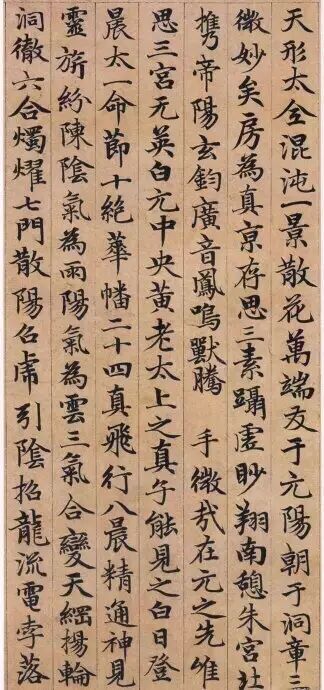 天形太空混沌一景散花萬端友于元陽朝于洞章三
微妙矣房為真京存思三素躡虛眇翔南憩朱宮
携帝陽玄鈞廣音鳳鳴獸騰 手微哉在元之先惟
思三宮无英白元中央黄老太上之真乍能見之白日登
晨太一命節十絕華幡二十四真飛行八晨精通神見
靈旂紛陳陰氣為雨陽氣為雲三氣合變天綱揚輪
洞徹六合燭耀七門散陽召虎引陰招龍流電孛落